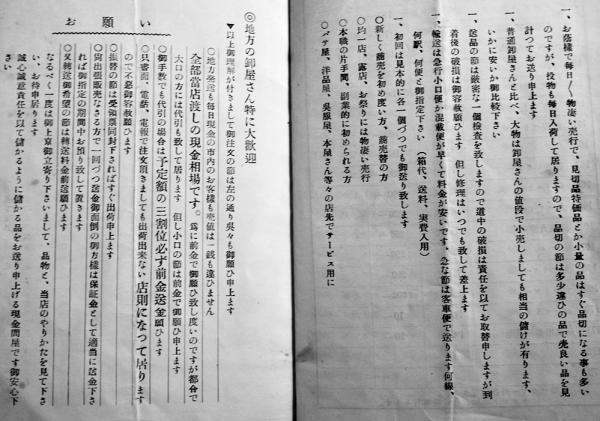 一、お蔭様で毎日〱物凄い売行で、見切品特価品とか小量の品はすぐ品切になる事も多い
のですが、投物も毎日入荷して居りますので、品切の節は多少違ひの品で売良い品を見
計つてお送り申します
一、普通卸屋さんと比べ、大物は卸屋さんの値段で小売しましても相当の儲けが有ります、
いかに安いか御比較下さい
一、送品の節は厳密な一個検査を致しますので道中の破損は責任を以てお取替申しますが到
着後の破損は御容赦願ひます　但し修理はいつでも致して差上ます
一、輸送は急行小口便か混載便が早くて料金が安いです、急な節は客車便で送ります何線、
何駅、何便と御指定下さい　（箱代、送料、実費入用）
一、初回は見本的に各一個づつでも御送り致します
○新しく商売を初め度い方、商売替の方
○均一店、露店、お祭りには物凄い売行
○本職の片手間、副業的に初められる方
○パチ屋、洋品屋、呉服屋、本屋さん等々の店先でサービス用に
◎地方の卸屋さん特に大歓迎
▼以上御理解が付きまして御注文の節は左の通り呉々も御願ひ申上ます
お願い
○地方発送も毎日現金の市内のお客様も売値は一銭も違ひません
全部当店渡しの現金相場です。為に前金で御願ひ致し度いのですが都合で
大口の方には代引も致して居ります　但し小口の節は前金で御願ひ申上ます
○御手数でも代引の場合は予定額の三割位必ず前金送金願ひます
○只書面、電話、電報で注文頂きましても出荷出来ない店則になつて居ります
ので不悪御容赦願ひます
○振替の節は受領票同封下されば すぐ出荷申上ます
○尚出張販売なさる方で一回づつ送金御面倒の御方様は保証金として適当に送金下さ
れば御指定の期間中お預り致して置きます
○又転送御希望の節は転送料金前送願ひます
なるべく一度は御上京御立寄り下さいまして、品物と、当店のやりかたを見て下さ
い、お待申居ります
誠心誠意責任を以て儲かるように儲かる品をお送り申上げる現金問屋です御安心下
さい